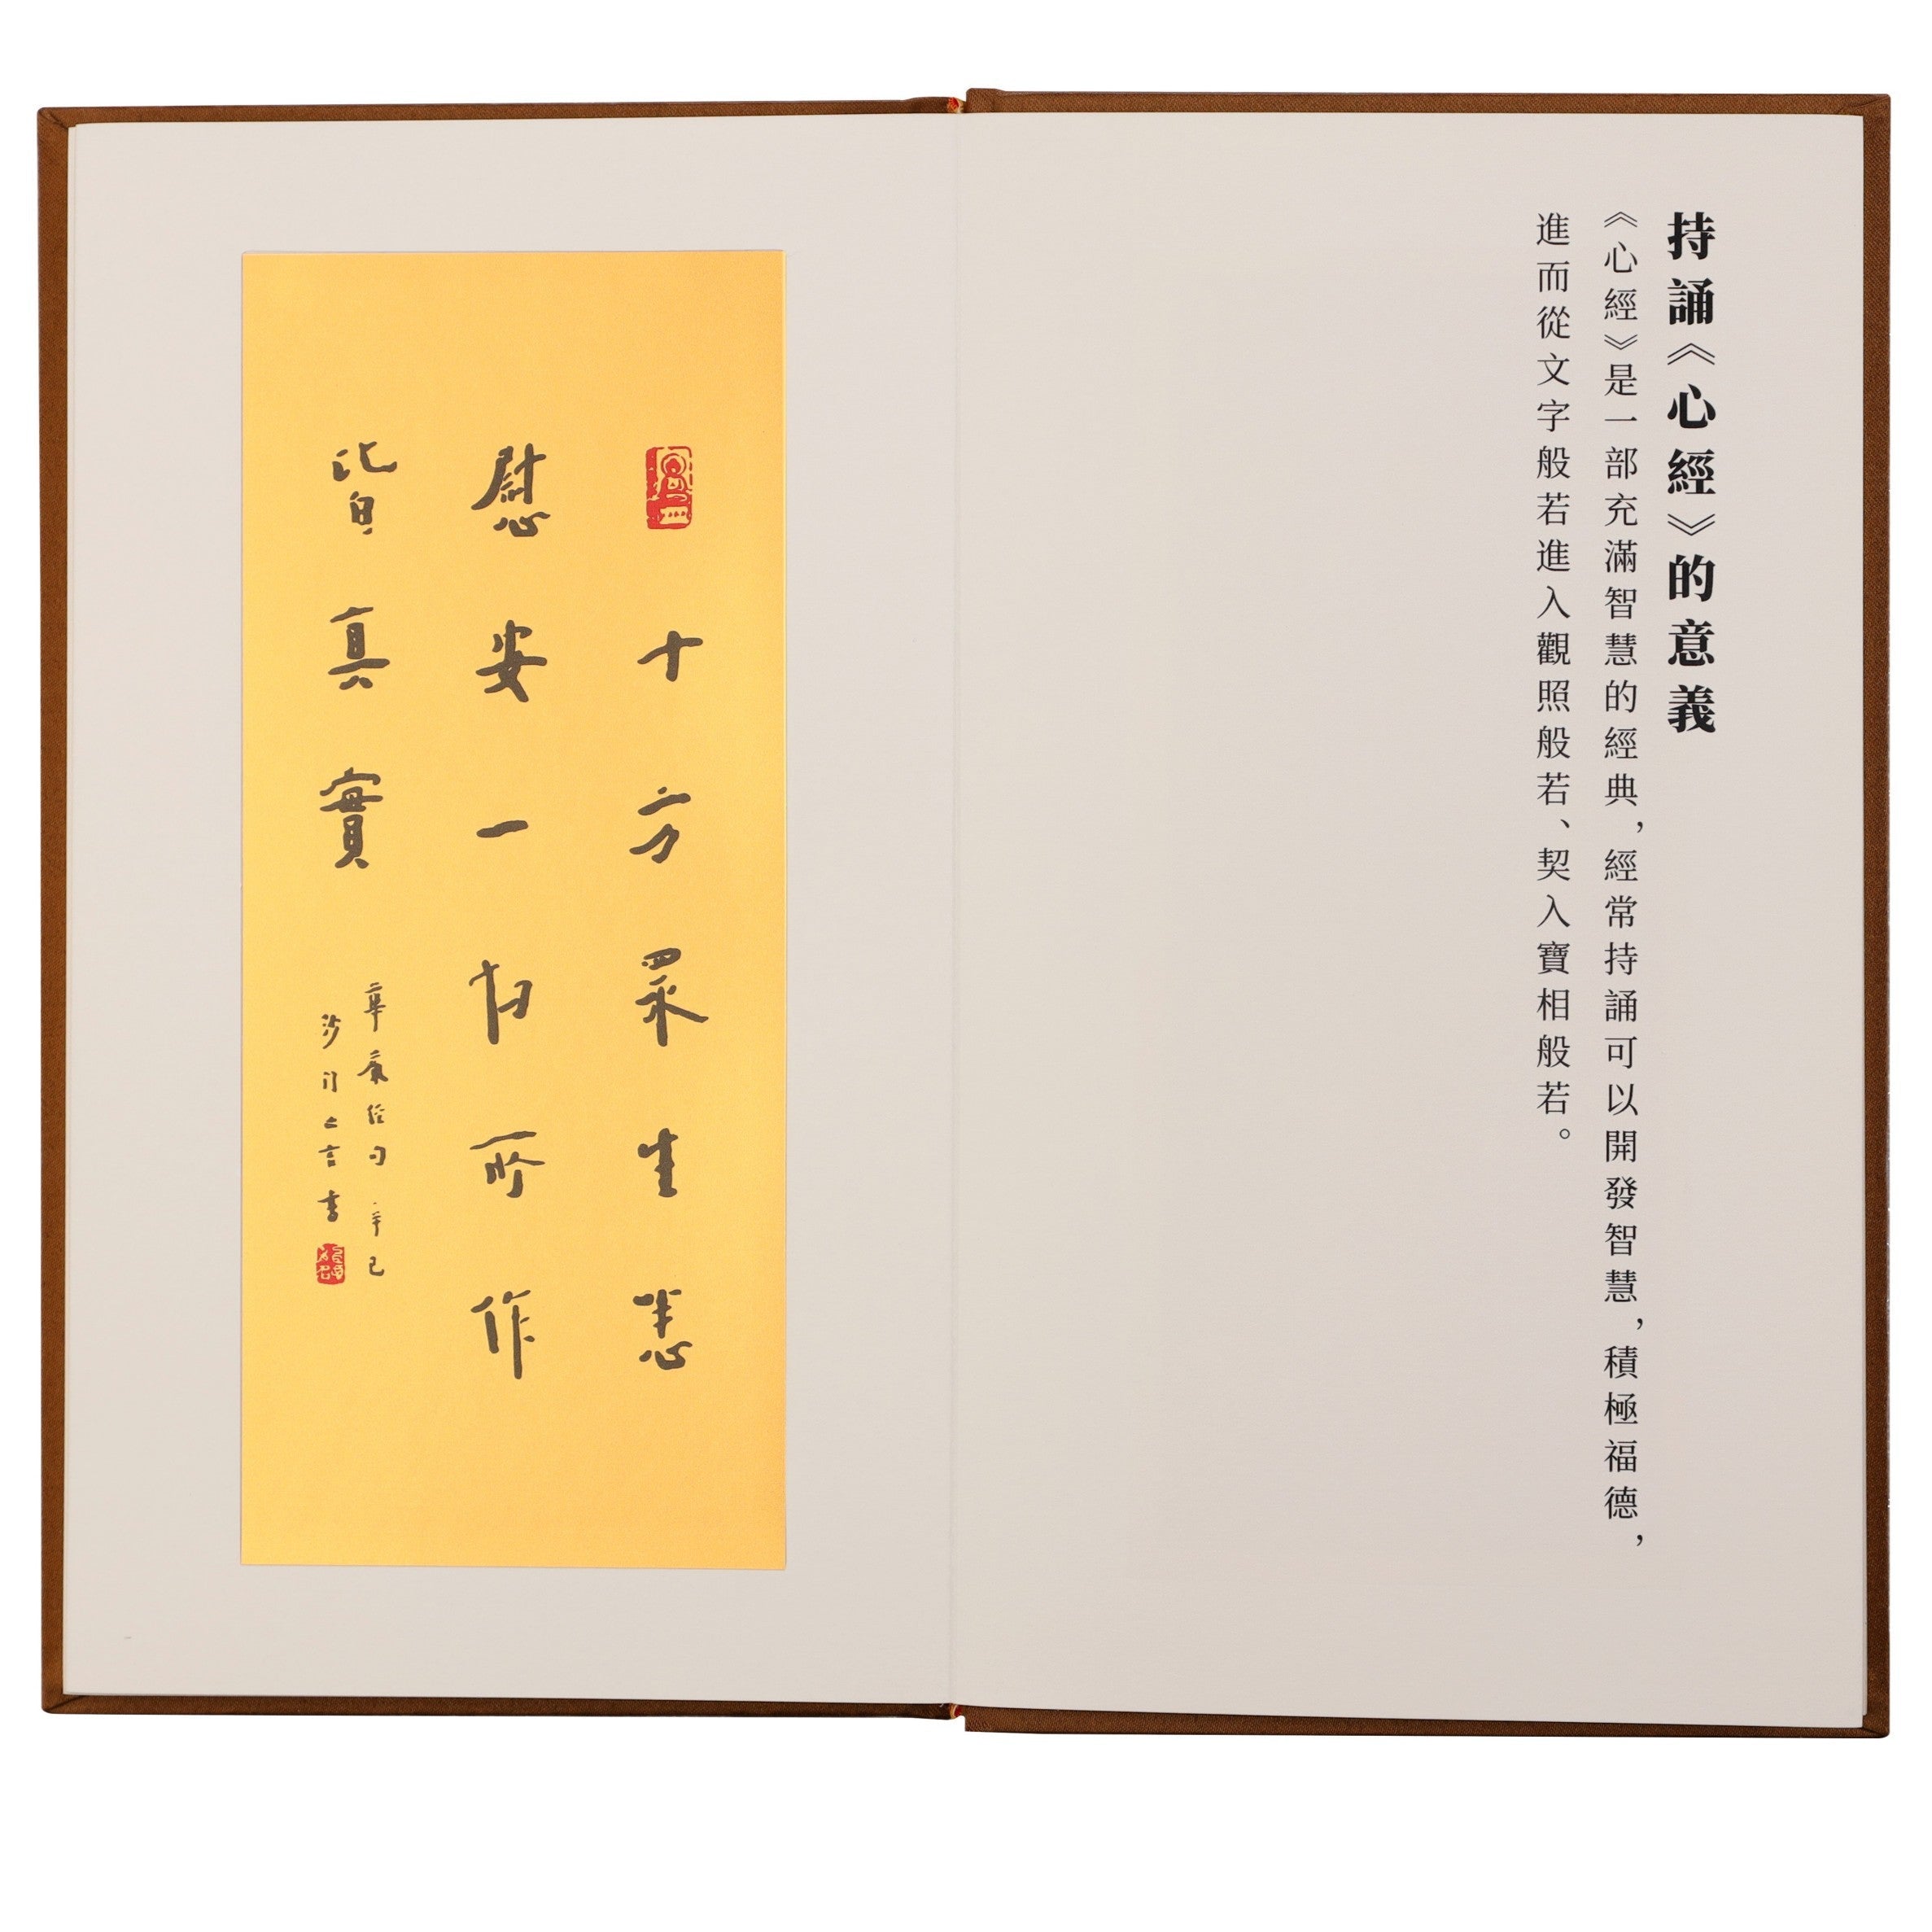 持誦《心經》的意義
《心經》是一部充滿智慧的經典，經常持誦可以開發智慧，積極福德，
進而從文字般若進入觀照般若、契入寶相般若。
十方眾生悉
慰安一切所作
皆真實
華嚴经句 辛巳
沙门亡言書